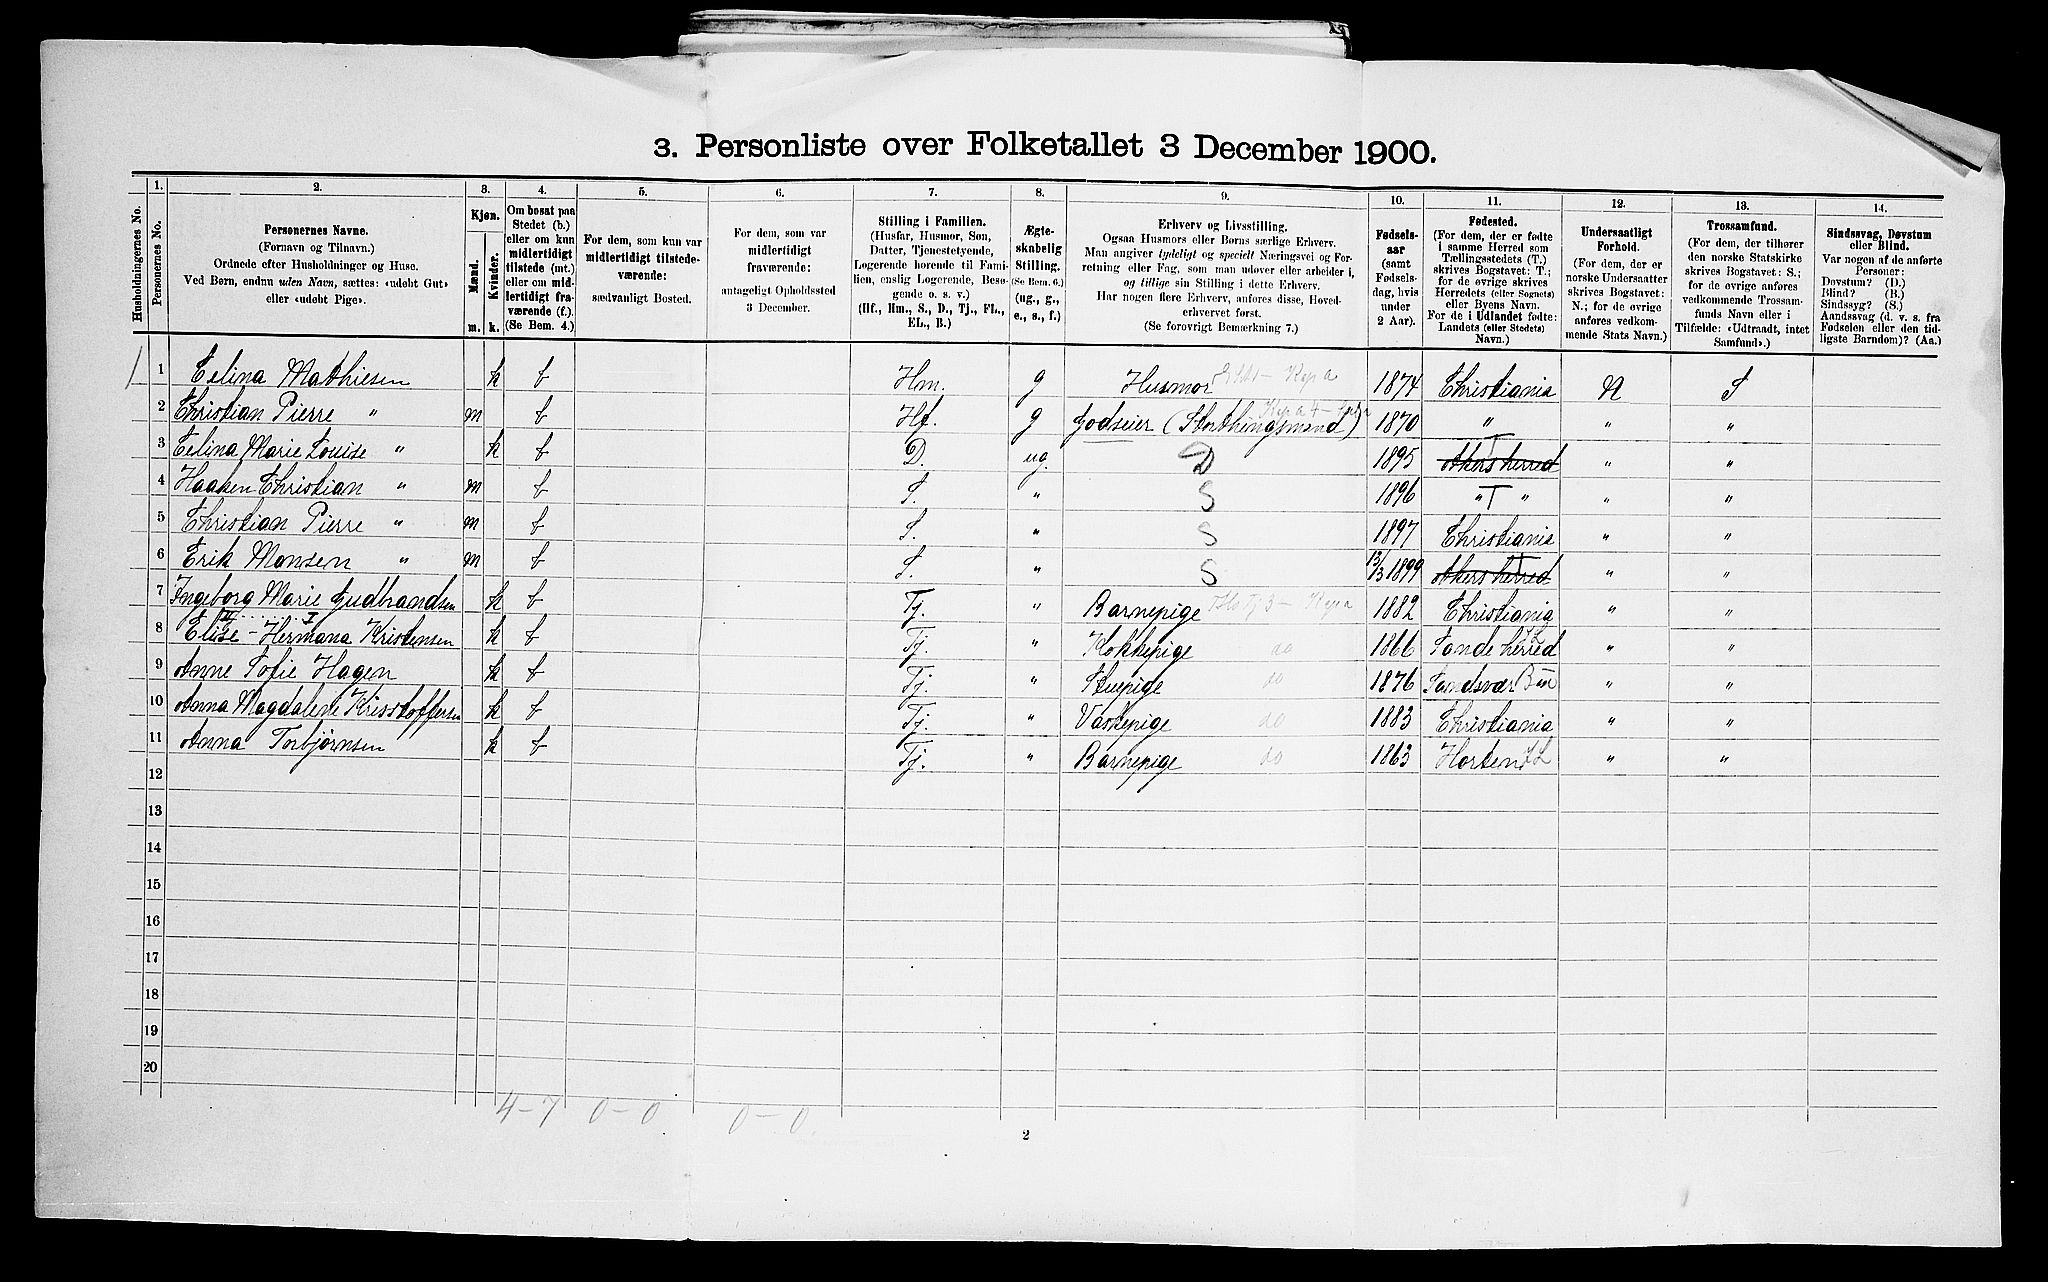 3. Personliste over Folketallet 3 December 1900.
Husholdningernes No.
1.
Personernes No.
2.
Personernes Navne.
(Fornavn og Tilnavn.)
Ordnede efter Husholdninger og Huse.
Ved Børn, endnu uden Navn, sættes: «udøbt Gut»
eller «udøbt Pige».
3.
Kjøn.
Mænd.
Kvinder.
m.
k.
4.
Om bosat paa
Stedet (b.)
eller om kun
midlertidigt
tilstede (mt.)
eller om mid-
lertidigt fra-
værende (f.).
(Se Bem. 4.)
5.
For dem, som kun var
midlertidigt tilstede-
værende:
sædvanligt Bosted.
6.
For dem, som var
midlertidigt
fraværende:
antageligt Opholdssted
3 December.
7.
Stilling i Familien.
(Husfar, Husmor, Søn,
Datter, Tjenestetyende,
Logerende hørende til Fami-
lien, enslig Logerende, Besø-
gende o. s. v.)
(Hf., Hm., S., D., Tj., Fl.,
EL., B.)
8.
Ægte-
skabelig
Stilling.
(Se Bem. 6.)
(ug., g.,
e., s., f.)
9.
Erhverv og Livsstilling.
Ogsaa Husmors eller Børns særlige Erhverv.
Man angiver tydeligt og specielt Næringsvei og For-
retning eller Fag, som man udøver eller arbeider i,
og tillige sin Stilling i dette Erhverv.
Har nogen flere Erhverv, anføres disse, Hoved-
erhvervet først.
(Se forøvrigt Bemærkning 7.)
10.
Fødsels-
aar
(samt
Fødsels-
dag, hvis
under
2 Aar).
11.
Fødested.
(For dem, der er fødte
i samme Herred som
Tællingsstedets (T.)
skrives Bogstavet: T;
for de øvrige skrives
Herredets (eller Sognets)
eller Byens Navn.
For de i Udlandet fødte:
Landets (eller Stedets)
Navn.)
12.
Undersaatligt
Forhold.
(For dem, der er
norske Undersaatter
skrives Bogstavet:
N.; for de øvrige
anføres vedkom-
mende Stats Navn.)
13.
Trossamfund.
(For dem, der tilhører
den norske Statskirke
skrives Bogstavet: S.;
for de øvrige anføres
vedkommende Trossam-
funds Navn eller i
Tilfælde: «Udtraadt, intet
Samfund».)
14.
Sindssvag, Døvstum
eller Blind.
Var nogen af de anførte
Personer:
Døvstum? (D.)
Blind? (B.)
Sindssyg? (S.)
Aandssvag (d. v. s. fra
Fødselen eller den tid-
ligste Barndom)? (Aa.)
1 1 Celina Mathiesen k b Hm. g Husmor 1874 Christiania N S
2 Christian Pierre " m b Hf. g Godseier (Storthingsmand) 1870 " " "
3 Celina Marie Louise " k b D. ug. D 1895 Akers herred T " "
4 Haaken Christian " m b S. " S 1896 " T " " "
5 Christian Pierre " m b S. " S 1897 Christiania " "
6 Erik Monsen " m b S. " S 13/3 1899 Akers herred T " "
7 Ingeborg Marie Gudbrandsen k b Tj. " Barnepige 1882 Christiania " "
8 Elise - Hermana Kristensen k b Tj. " Kokkepige do 1866 Sande herred " "
9 Anne Sofie Hagen k b Tj. " Stuepige do 1876 Sandsvær " "
10 Anna Magdalene Kristoffersen k b Tj. " Vaskepige do 1883 Christiania " "
11 Anna Torbjørnsen k b Tj. " Barnepige do 1863 Horten " "
12
13
14
15
16
17
18
19
20
4-7 0-0 0-0
2